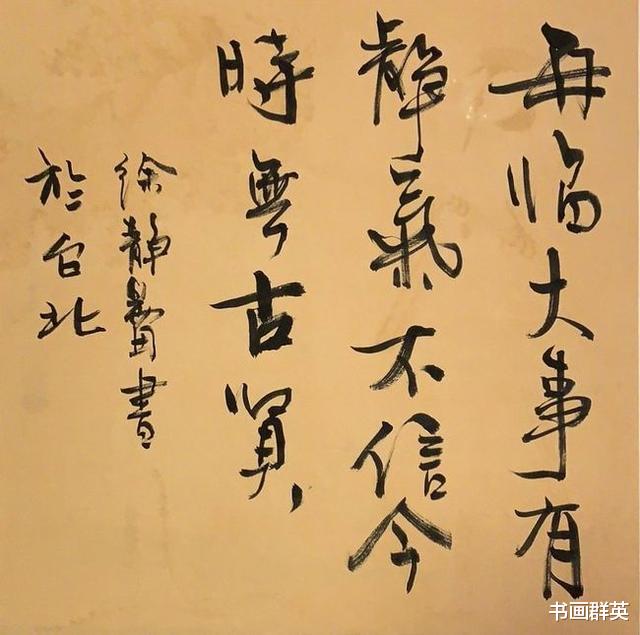 每临大事有
静氣不信今
時無古賢
徐静蕾書
於台北
书画群英